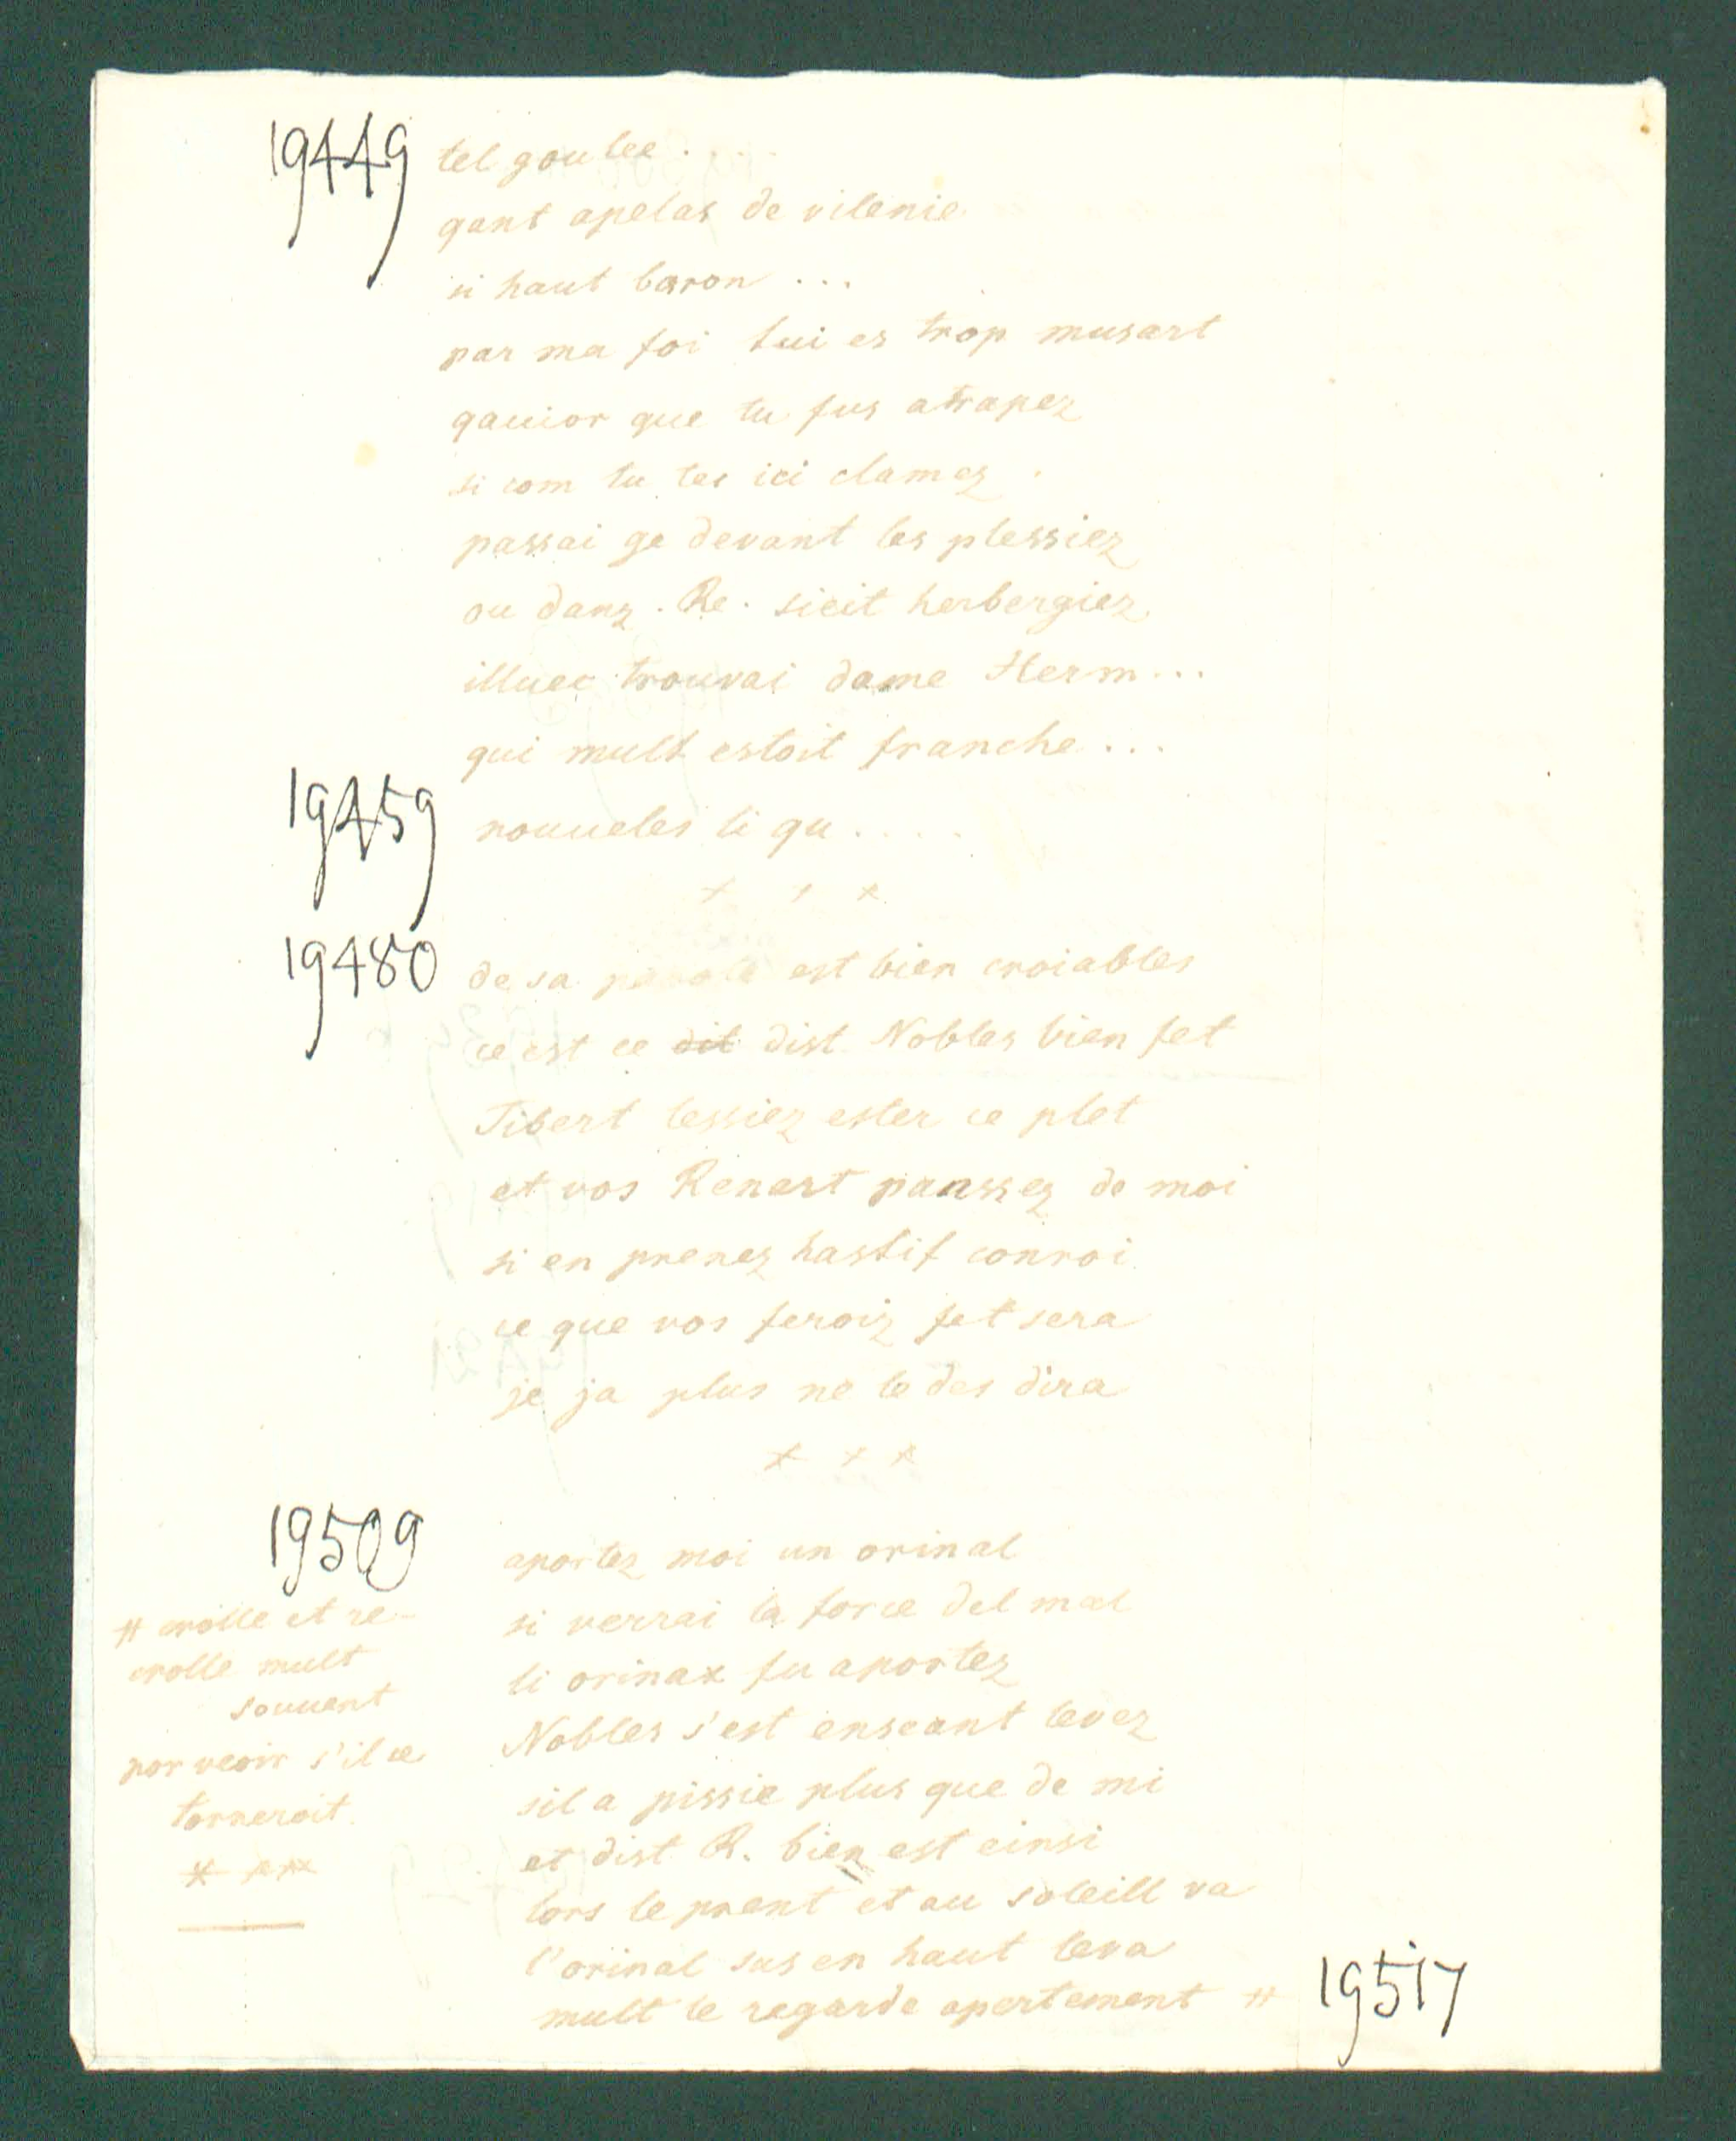 19449 tel goulee . . . .
qant apelas de vilenie
si haut baron ...
par ma foi tui es trop musart
qauior que tu fus atrapez
si com tu tes ici clamez .
passai ge devant les plessiez
ou danz . Re . sieit herbergiez
illuec trouvai dame Herm...
qui mult estoit franche ...
19459 nouueles li qu . . . . .
x x x
19480 de sa parole est bien croiables
ce est ce dit dist Nobles bien fet
Tibert lessiez ester ce plet
et vos Renart panssez de moi
si en prenez hastif conroi
ce que vos feroiz fet sera
je ja plus ne le des dira
x x x
19509 aportez moi un orinal
si verrai la force del mal
li orinax fu aportez
Nobles s'est enseant levez
sil a pissie plus que de mi
et dist R. bien est einsi
lors le prent et au soleill va
l'orinal sus en haut leva
mult le regarde apertement # 19517
# crolle et re-
crolle mult
souuent
por veoir s'il ce
torneroit.
x x x